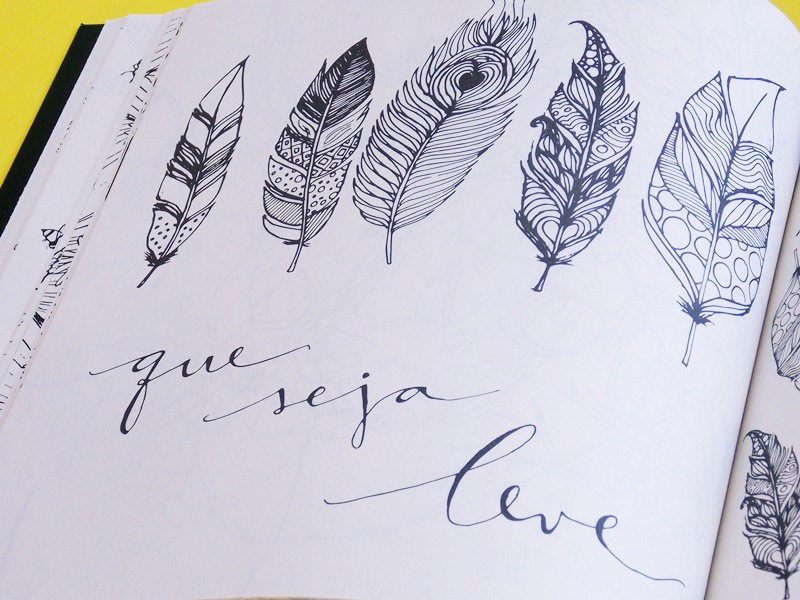 que
seja
leve